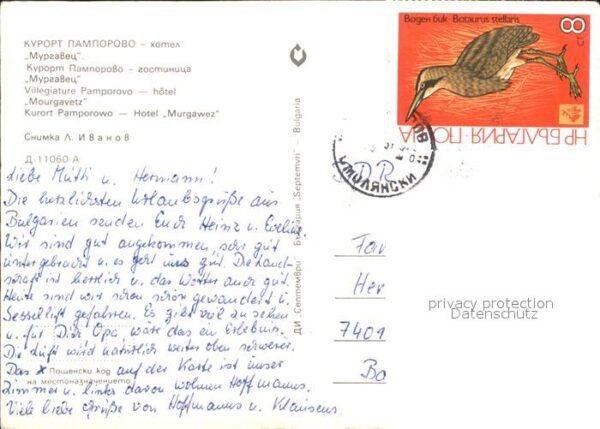 КУРОРТ ПАМПОРОВО – хотел
„Мургавец".
Курорт Пампорово – гостиница
„Мургавец"
Villegiature Pamporovo — hôtel
„Mourgavetz"
Kurort Pamporowo — Hotel „Murgawez"
Снимка Л. Иванов
Д-11060-А
Liebe Mutti u. Hermann!
Die herzlichsten Urlaubsgrüße aus
Bulgarien senden Euch Heinz u. Eveline.
Wir sind gut angekommen, sehr gut
untergebracht u. es geht uns gut. Die Land-
schaft ist herrlich u. das Wetter auch gut.
Heute sind wir schon schön gewandert u.
Sessellift gefahren. Es gibt viel zu sehen
u. für Dich Opa, wäre das ein Erlebnis.
Die Luft wird natürlich weiter oben schwerer.
Das x auf der Karte ist unser
Пощенски код
на местоназначението
Zimmer u. links davon wohnen Hoffmanns.
Viele liebe Grüße von Hoffmanns u. Klausens
ДИ „Септември" България „Septemvri" — Bulgaria
Воден бик · Botaurus stellaris
8
НР БЪЛГАРИЯ · ПОЩА
СМОЛЯНСКИ
DDR
Fa
Her
7401
Bo
privacy protection
Datenschutz